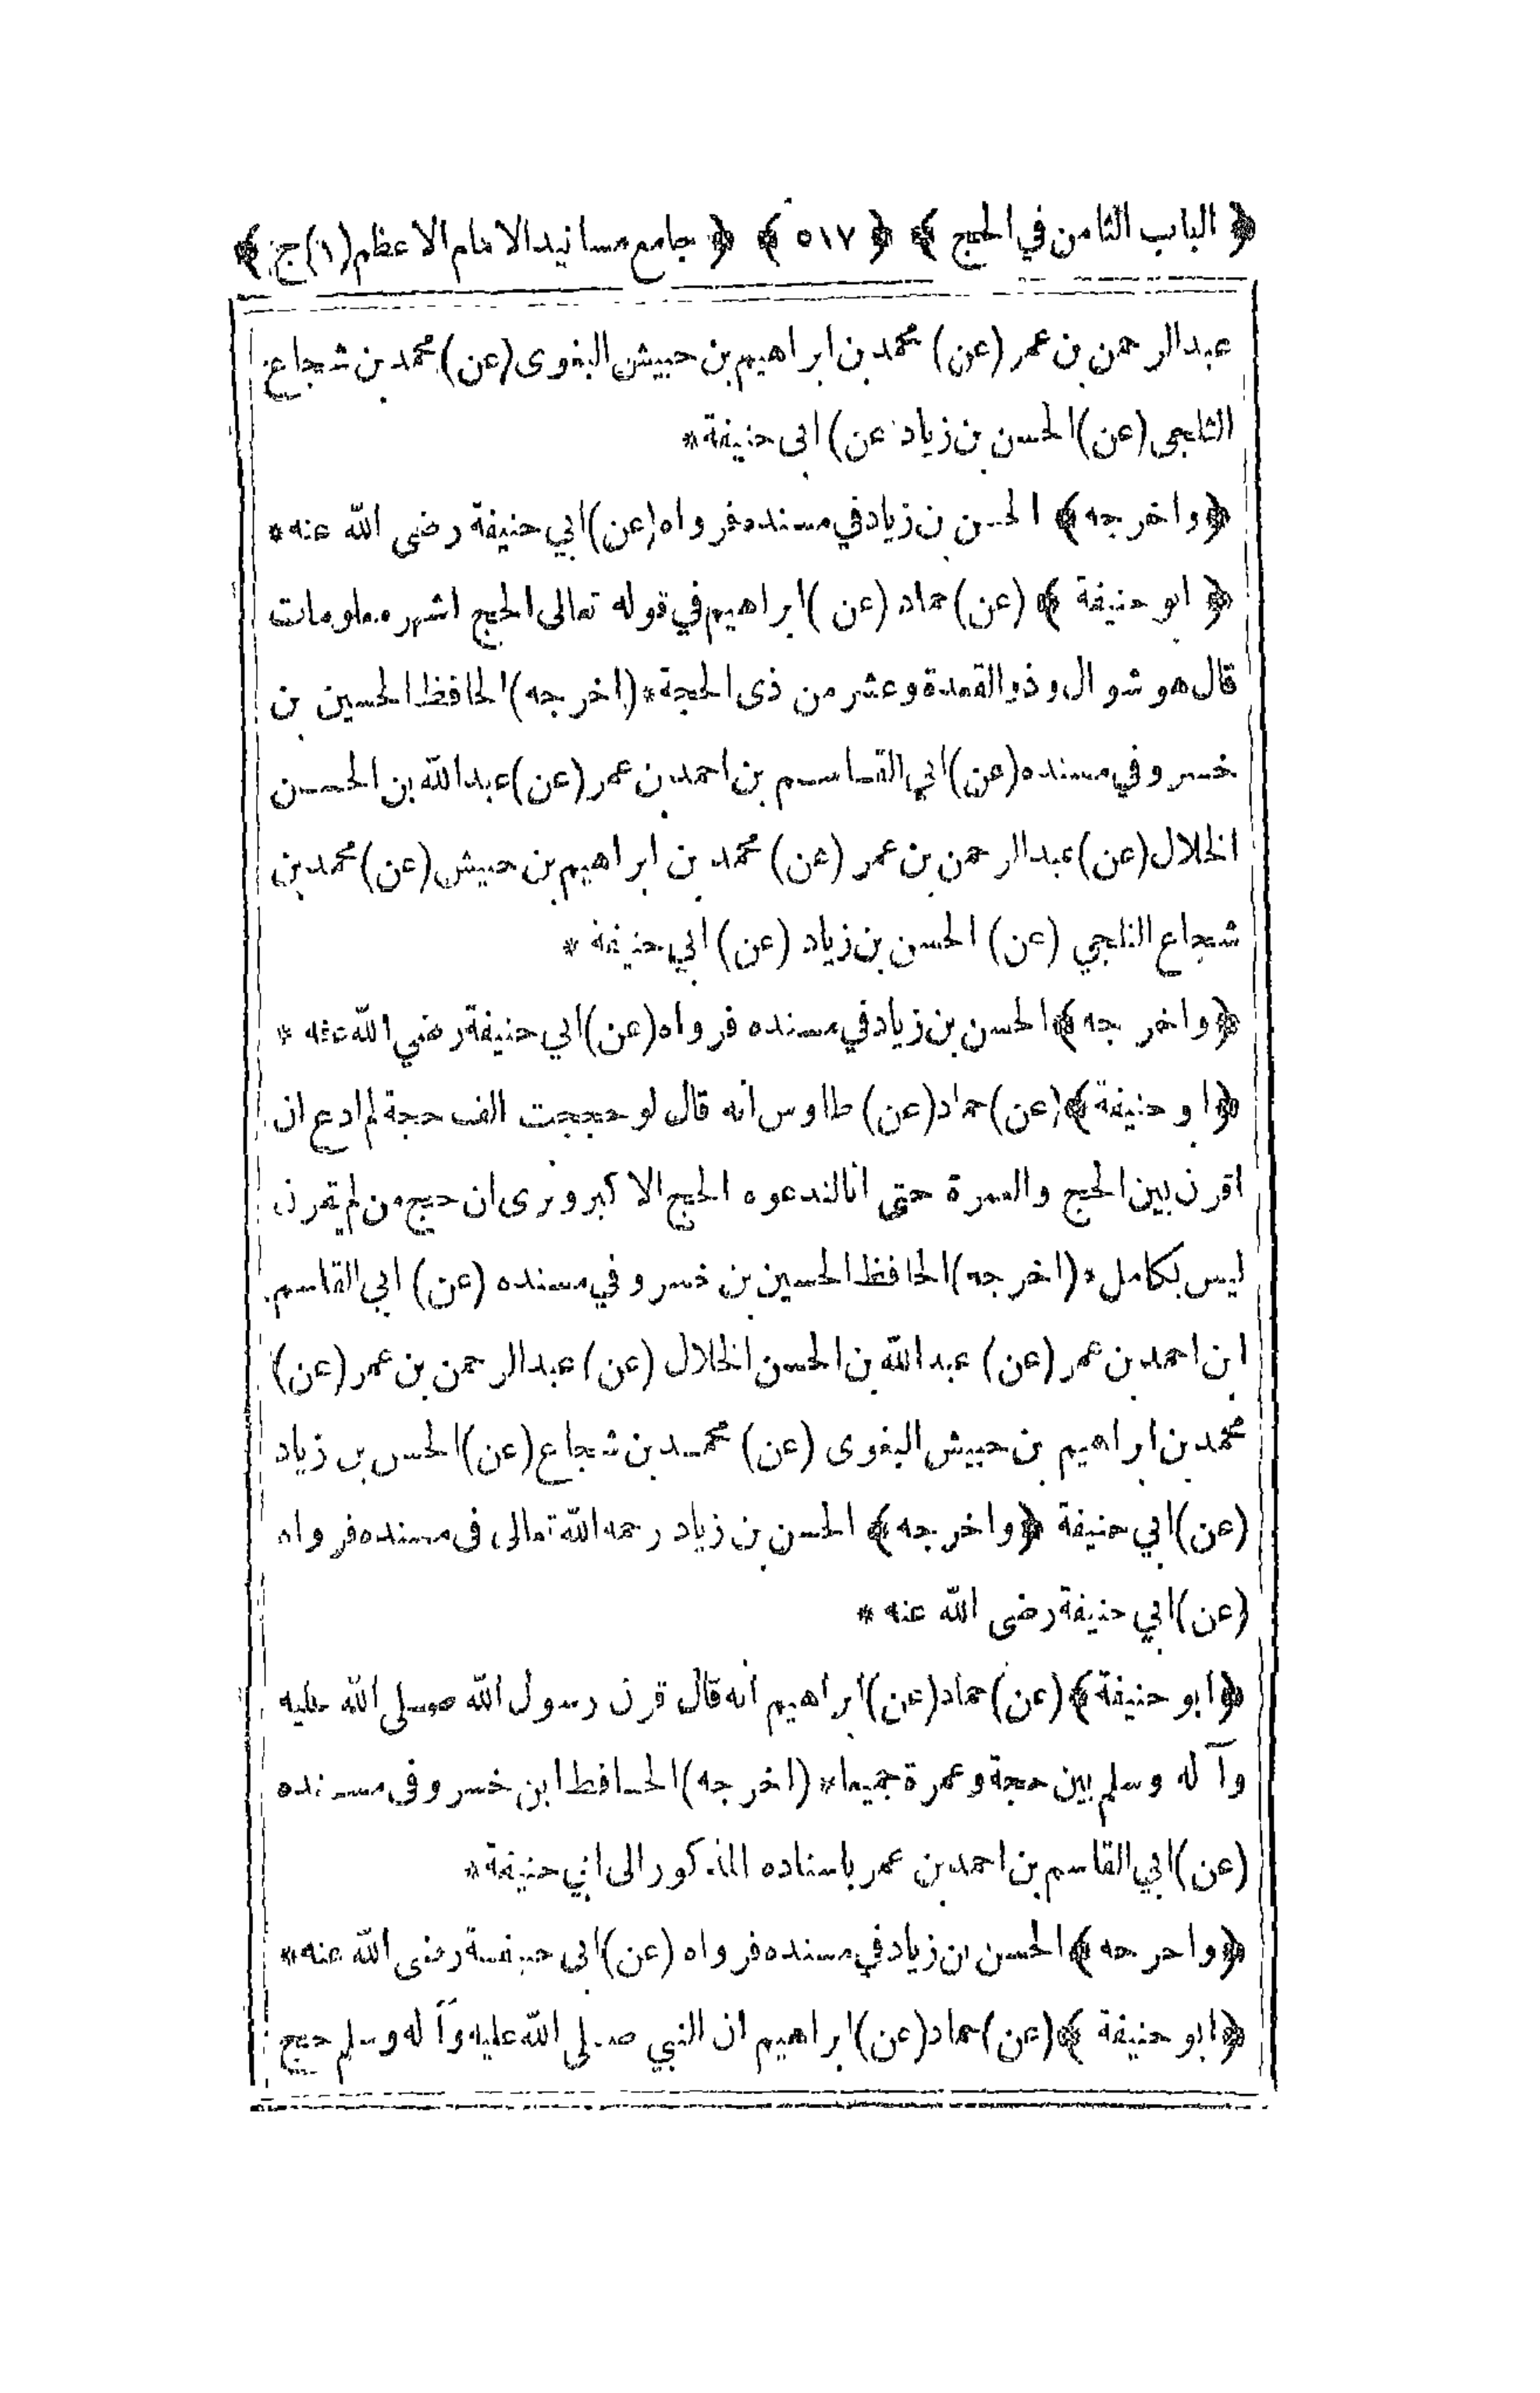 ﴿ الباب الثامن في الحج ﴾ ﴿ ٥١٧ ﴾ ﴿ جامع مسانيد الامام الاعظم (١) ج ﴾
عبد الرحمن بن عمر (عن) محمد بن ابراهيم بن حبيش البغوى (عن) محمد بن شجاع
الثلجى (عن) الحسن بن زياد (عن) ابى حنيفة *
﴿ واخرجه ﴾ الحسن بن زياد في مسنده فرواه (عن) ابي حنيفة رضى الله عنه *
﴿ ابو حنيفة ﴾ (عن) حماد (عن) ابراهيم في قوله تعالى الحج اشهر معلومات
قال هو شوال وذو القعدة وعشر من ذى الحجة * (اخرجه) الحافظ الحسين بن
خسرو في مسنده (عن) ابي القاسم بن احمد بن عمر (عن) عبد الله بن الحسن
الخلال (عن) عبد الرحمن بن عمر (عن) محمد بن ابراهيم بن حبيش (عن) محمد بن
شجاع الثلجي (عن) الحسن بن زياد (عن) ابي حنيفة *
﴿ واخرجه ﴾ الحسن بن زياد في مسنده فرواه (عن) ابي حنيفة رضي الله عنه *
﴿ ابو حنيفة ﴾ (عن) حماد (عن) طاوس انه قال لو حججت الف حجة لم ادع ان
اقرن بين الحج والعمرة حتى انا لندعوه الحج الاكبر ونرى ان حج من لم يقرن
ليس بكامل * (اخرجه) الحافظ الحسين بن خسرو في مسنده (عن) ابي القاسم
ابن احمد بن عمر (عن) عبد الله بن الحسن الخلال (عن) عبد الرحمن بن عمر (عن)
محمد بن ابراهيم بن حبيش البغوى (عن) محمد بن شجاع (عن) الحسن بن زياد
(عن) ابي حنيفة ﴿ واخرجه ﴾ الحسن بن زياد رحمه الله تعالى فى مسنده فرواه
(عن) ابي حنيفة رضى الله عنه *
﴿ ابو حنيفة ﴾ (عن) حماد (عن) ابراهيم انه قال قرن رسول الله صلى الله عليه
وآله وسلم بين حجة وعمرة جميعا * (اخرجه) الحافظ ابن خسرو فى مسنده
(عن) ابي القاسم بن احمد بن عمر باسناده المذكور الى ابي حنيفة *
﴿ واخرجه ﴾ الحسن بن زياد في مسنده فرواه (عن) ابى حنيفة رضى الله عنه *
﴿ ابو حنيفة ﴾ (عن) حماد (عن) ابراهيم ان النبي صلى الله عليه وآله وسلم حج